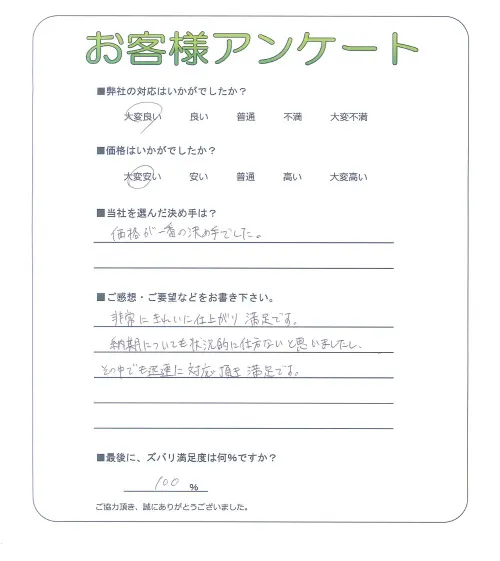 お客様アンケート
■弊社の対応はいかがでしたか？
大変良い 良い 普通 不満 大変不満
■価格はいかがでしたか？
大変安い 安い 普通 高い 大変高い
■当社を選んだ決め手は？
価格が一番の決め手でした。
■ご感想・ご要望などをお書き下さい。
非常にきれいに仕上がり満足です。
納期についても状況的に仕方ないと思いましたし、
その中でも迅速に対応頂き満足です。
■最後に、ズバリ満足度は何％ですか？
100 %
ご協力頂き、誠にありがとうございました。